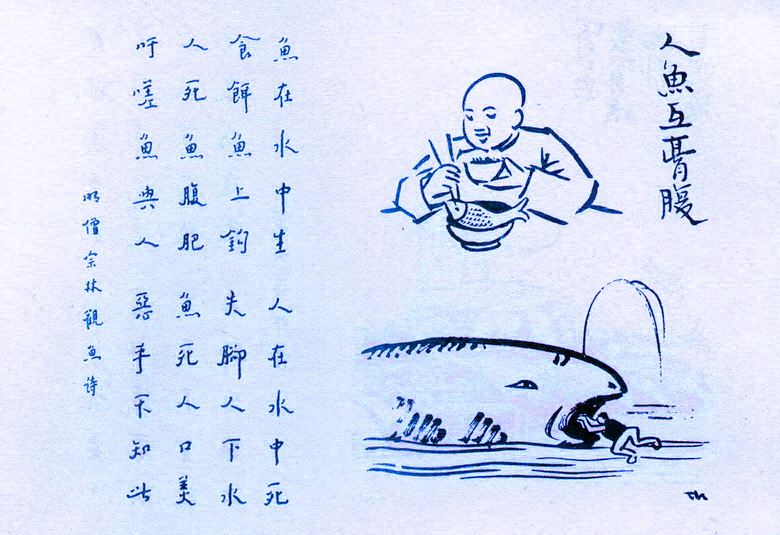 人魚互膏腹
魚在水中生 人在水中死
食餌魚上鈎 失腳人下水
人死魚腹肥 魚死人口美
吁嗟魚與人 惡乎不知此
明僧宗林觀魚詩
TK